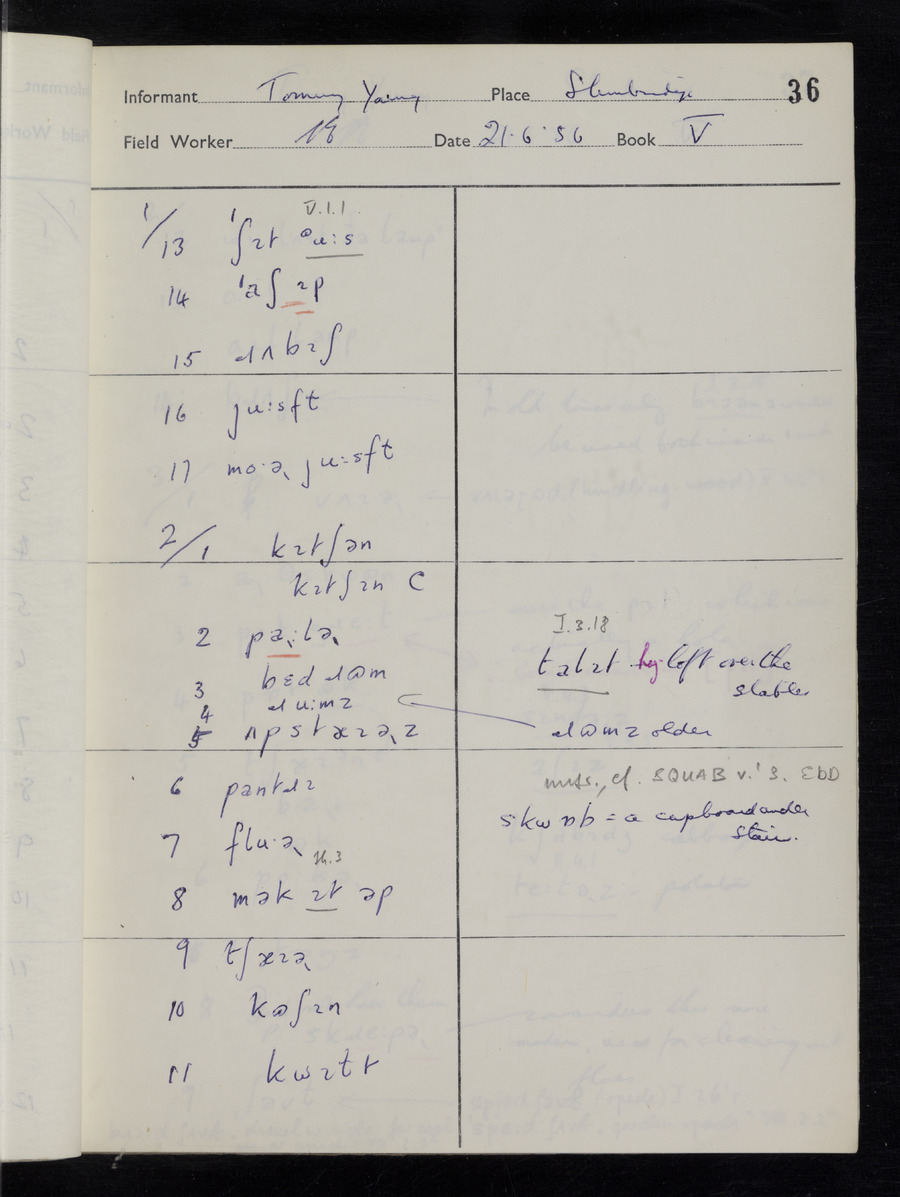 Informant Tommy Young Place Slimbridge 36
Field Worker Date 21·6·56 Book V
V.1.1
1/13 ˈʃɪt ᶷu:s
14 ˈaʃ ɪp
15 ɹʌbɪʃ
16 ju:sft
17 mɔ·ə˞ ju:sft
2/1 kɪtʃən
kɪtʃɪn C
I.3.18
2 pa˞:lə˞ talɪt hy-loft over the
stable
3 bɛd ɹʊm
4 ɹu:mz ɹʊmz older
5 ʌpstɛɪə˞z
nuts., cf. SQUAB v.¹ 3. EDD
6 pantɹɪ
skwɒb = a cupboard under
stair.
7 flu·ə˞
8 mək ɪt əp
9 tʃɛɪə˞
10 kʊʃɪn
11 kwɪtɪ